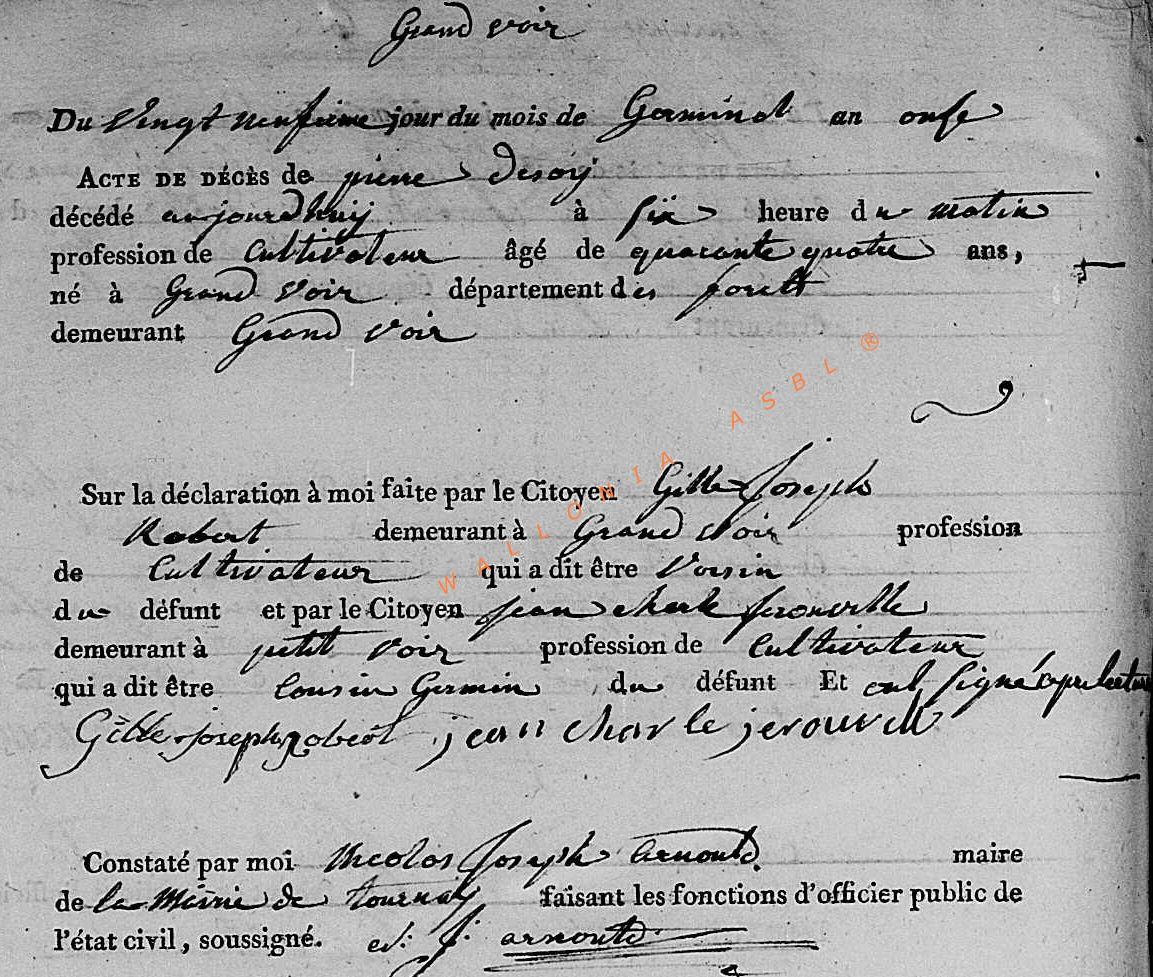 Grand voir
Du vingt neufieme jour du mois de Germinal an onse
ACTE DE DÉCÈS de pierre Desoÿ
décédé aujourdhuÿ à six heure du matin
profession de Cultivateur âgé de quarante quatre ans,
né à Grand Voir département des forets
demeurant Grand Voir
Sur la déclaration à moi faite par le Citoyen Gille Joseph
Robert demeurant à Grand Voir profession
de Cultivateur qui a dit être Voisin
du défunt et par le Citoyen jean charle jerouville
demeurant à petit Voir profession de Cultivateur
qui a dit être Cousin Germin du défunt Et ont signé apres lecture
Gille Joseph robert jean charle jerouville
Constaté par moi Nicolas Joseph arnould maire
de la Mairie de tournay faisant les fonctions d'officier public de
l'état civil, soussigné. J. arnould
WALLONIA ASBL ®